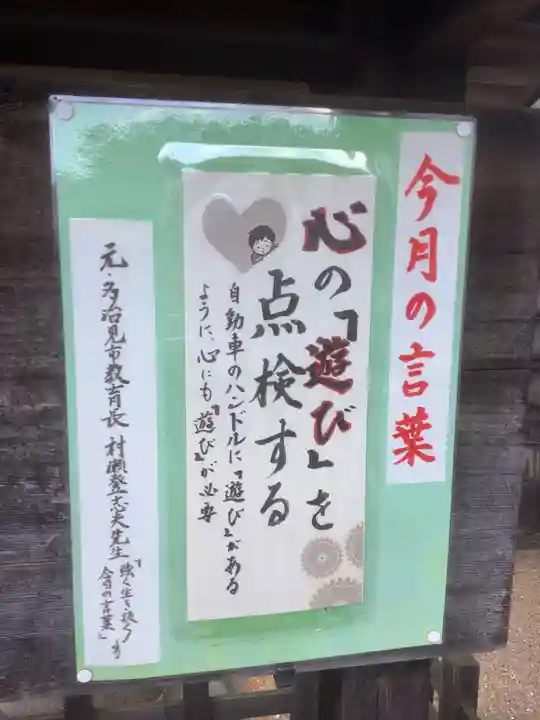 今月の言葉
心の「遊び」を
点検する
自動車のハンドルに「遊び」がある
ように、心にも「遊び」が必要
元・多治見市教育長 村瀬登志夫先生
「強く生き抜く
今日の言葉」より